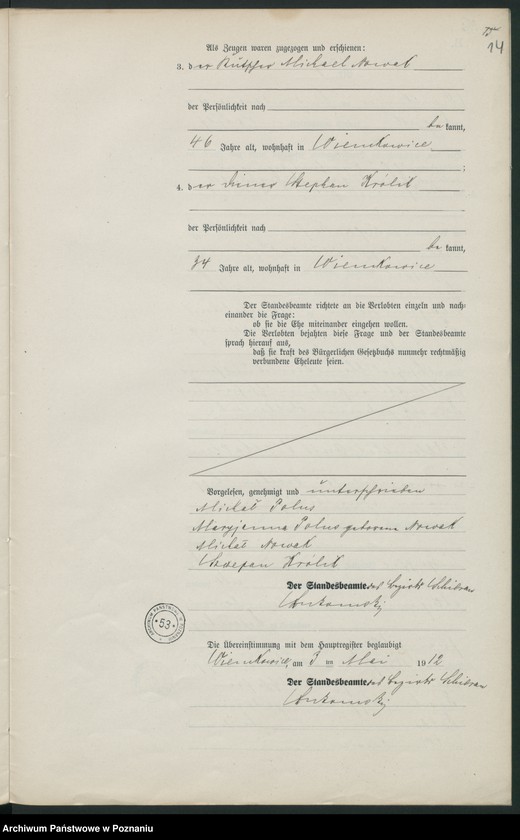 14
Als Zeugen waren zugezogen und erschienen:
3. der Kutscher Michael Nowak
der Persönlichkeit nach
bekannt,
46 Jahre alt, wohnhaft in Wienskowice
;
4. der Stephan Krölik
der Persönlichkeit nach
bekannt,
34 Jahre alt, wohnhaft in Wienskowice
Der Standesbeamte richtete an die Verlobten einzeln und nach-
einander die Frage:
ob sie die Ehe miteinander eingehen wollen.
Die Verlobten bejahten diese Frage und der Standesbeamte
sprach hierauf aus,
daß sie kraft des Bürgerlichen Gesetzbuchs nunmehr rechtmäßig
verbundene Eheleute seien.
Vorgelesen, genehmigt und unterschrieben
Michał Polus
Maryjanna Polus geborene Nowak
Michał Nowak
Szczepan Królik
Der Standesbeamte des Bezirks
Die Übereinstimmung mit dem Hauptregister beglaubigt
am 3 ten Mai 1912
Der Standesbeamte des Bezirks
53
Archiwum Państwowe w Poznaniu